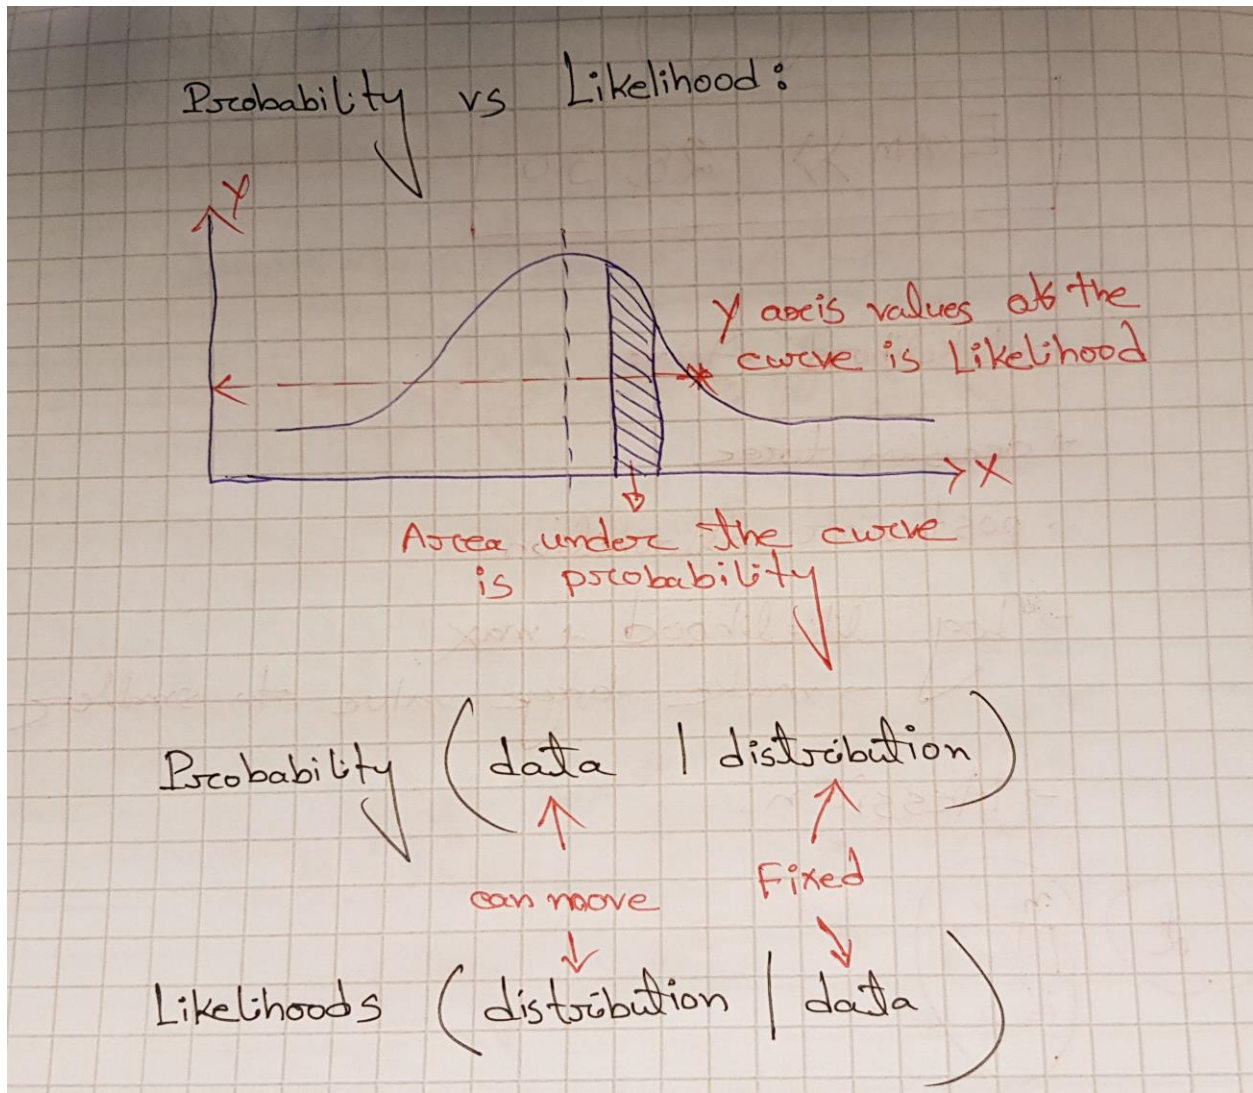 Probability vs Likelihood:
Y
Y axis values of the
curve is Likelihood
X
Area under the curve
is probability
Probability (data | distribution)
can move Fixed
Likelihoods (distribution | data)